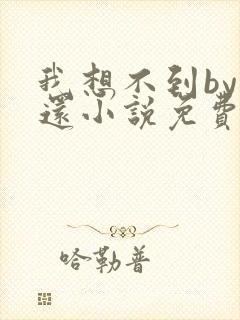 我想不到by
還小說免費
哈勒普